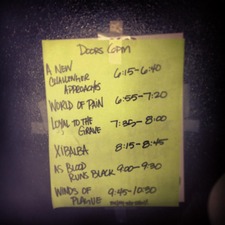 DOORS 6PM
A NEW
CHALLENGER
APPROACHES 6:15-6:40
WORLD OF PAIN 6:55-7:20
LOYAL TO THE
GRAVE 7:35-8:00
XIBALBA 8:15-8:45
AS BLOOD
RUNS BLACK 9:00-9:30
WINDS OF
PLAGUE 9:45-10:30